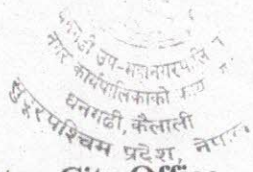 धनगढी उप-महानगरपालि
नगर कार्यपालिकाको
धनगढी, कैलाली
सुदूरपश्चिम प्रदेश, नेपाल
City Office